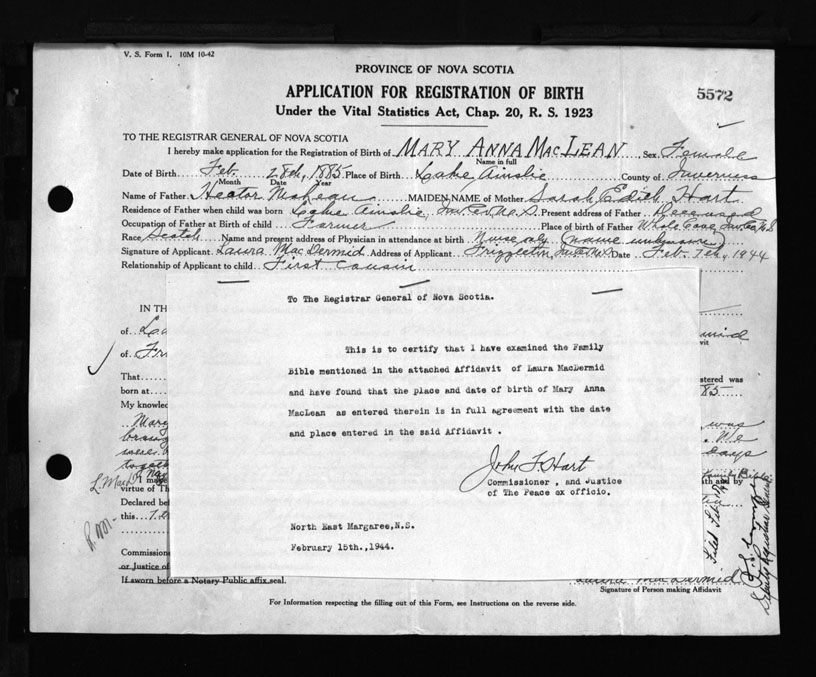 V. S. Form 1. 10M 10-42
PROVINCE OF NOVA SCOTIA
APPLICATION FOR REGISTRATION OF BIRTH
5572
Under the Vital Statistics Act, Chap. 20, R. S. 1923
TO THE REGISTRAR GENERAL OF NOVA SCOTIA
I hereby make application for the Registration of Birth of MARY ANNA MACLEAN Sex Female
Name in full
Date of Birth Feb. 28th, 1885 Place of Birth Lake Ainslie County of Inverness
Month Date Year
Name of Father Hector McLean MAIDEN NAME of Mother Sarah Edith Hart
Residence of Father when child was born Lake Ainslie, Inv. Co. N.S. Present address of Father Deceased
Occupation of Father at Birth of child Farmer Place of birth of Father Whale Cove, Inv. Co. N.S
Race Scotch Name and present address of Physician in attendance at birth Nurse only (name unknown)
Signature of Applicant Laura MacDermid Address of Applicant Frizzleton, Inv. Co. N.S. Date Feb. 7th, 1944
Relationship of Applicant to child First Cousin
To The Registrar General of Nova Scotia.
IN TH
This is to certify that I have examined the Family
Bible mentioned in the attached Affidavit of Laura MacDermid
and have found that the place and date of birth of Mary Anna
MacLean as entered therein is in full agreement with the date
and place entered in the said Affidavit .
of
of Fr
That
stered was
born at 85
My knowled
Mary was
We
says
Family Bible
L. MacD.
I ma
virtue of Th
Declared be
this 7
John F. Hart
Commissioner , and Justice
of The Peace ex officio.
North East Margaree,N.S.
February 15th.,1944.
Commission
or Justice of
If sworn before a Notary Public affix seal.
Laura MacDermid
Signature of Person making Affidavit
For Information respecting the filling out of this Form, see Instructions on the reverse side.
Deputy Registrar General